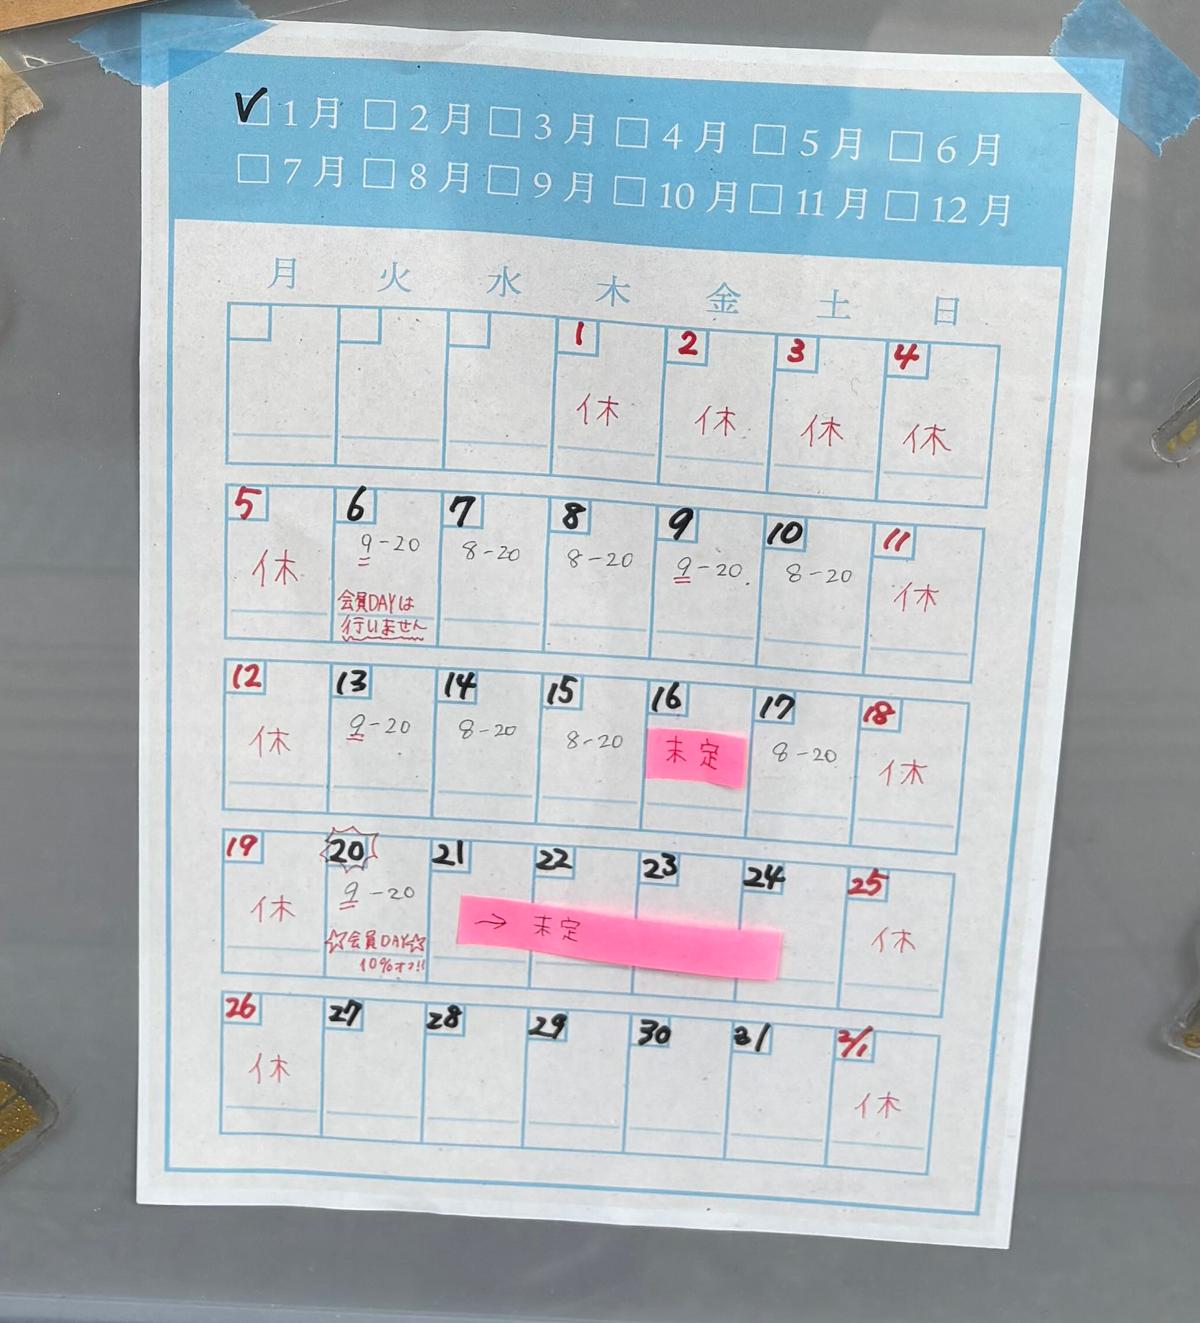 ✓□1月 □2月 □3月 □4月 □5月 □6月
□7月 □8月 □9月 □10月 □11月 □12月
月 火 水 木 金 土 日
1 2 3 4
休 休 休 休
5 6 7 8 9 10 11
休 9-20 8-20 8-20 9-20. 8-20 休
会員DAYは
行いません
12 13 14 15 16 17 18
休 9-20 8-20 8-20 未定 8-20 休
19 20 21 22 23 24 25
休 9-20 → 未定 休
☆会員DAY☆
10%オフ!!
26 27 28 29 30 31 2/1
休 休